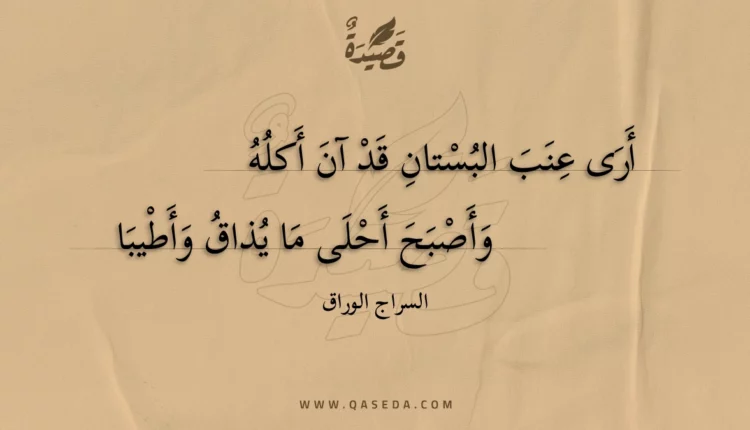 قَصِيْدَةٌ
أَرَى عِنَبَ البُسْتانِ قَدْ آنَ أَكلُهُ
وَأَصْبَحَ أَحْلَى مَا يُذاقُ وَأَطْيبَا
السراج الوراق
WWW.QASEDA.COM